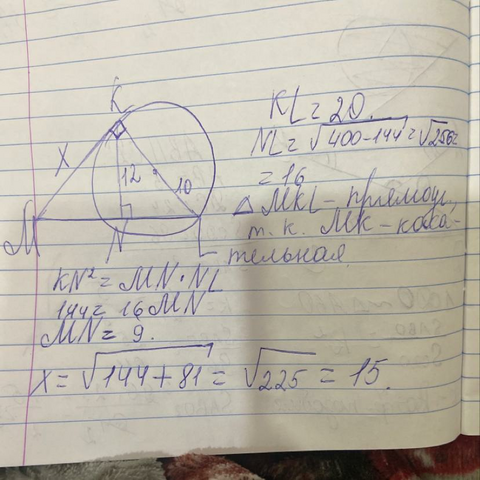 K
X
12
10
M
N
L
KL = 20.
NL = √400-144 = √256 =
= 16
△ MKL - прямоуг.,
т. к. MK - каса-
тельная.
KN² = MN · NL
144 = 16 MN
MN = 9.
x = √144 + 81 = √225 = 15.